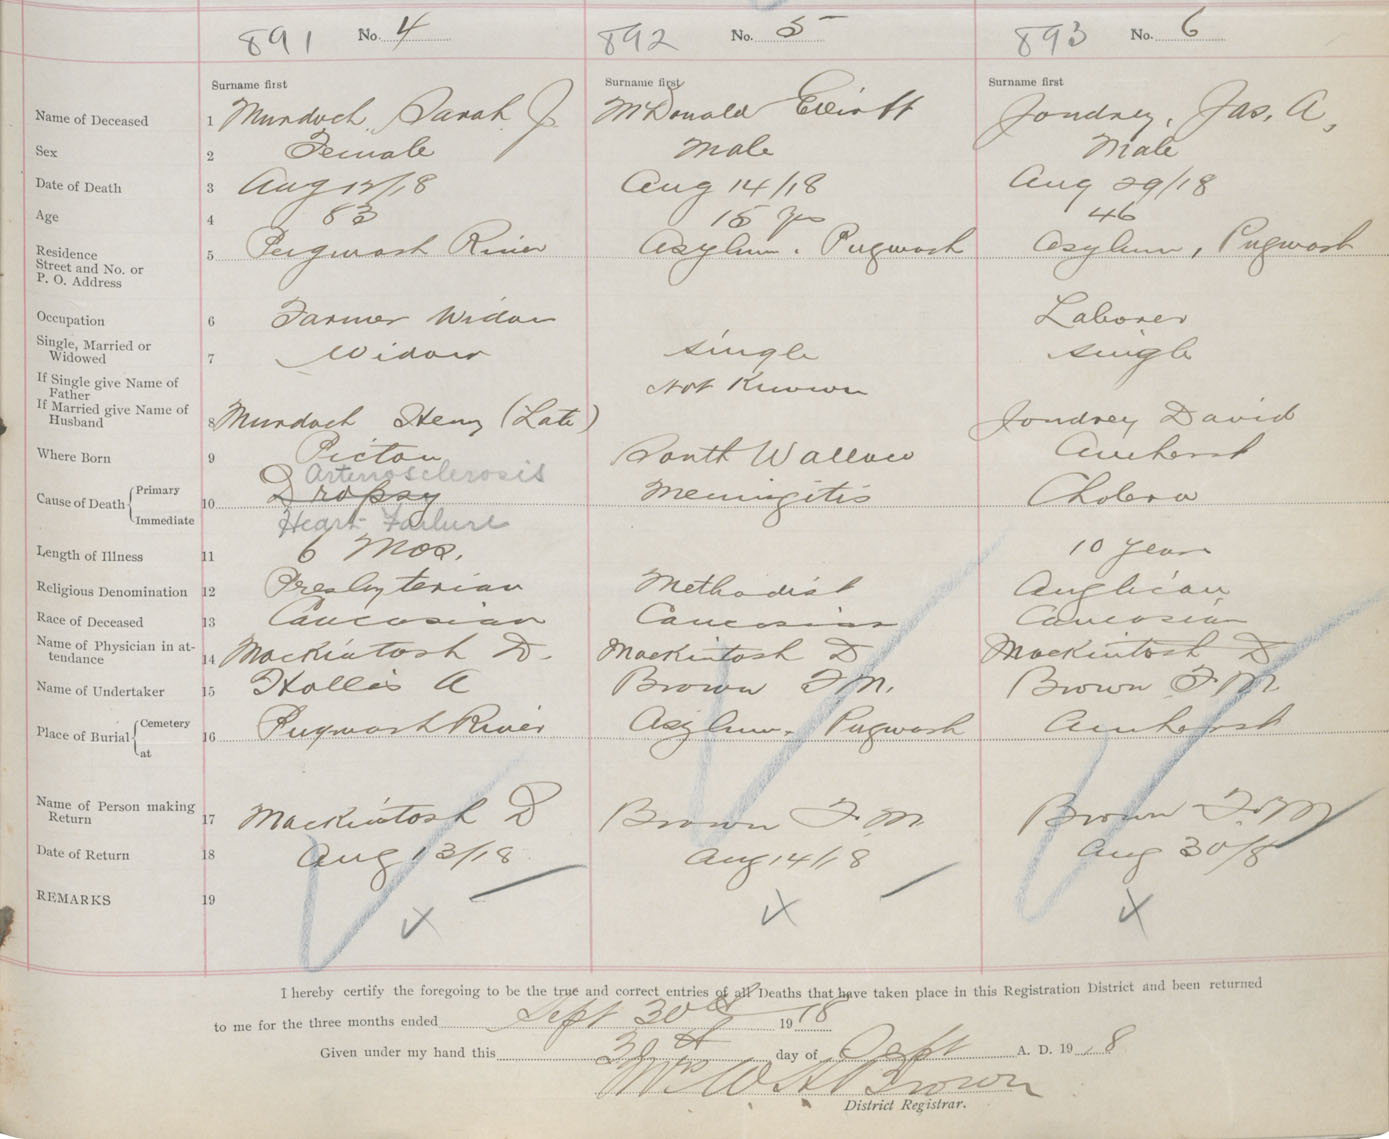 891 No. 4 892 No. 5 893 No. 6
Surname first Surname first Surname first
Name of Deceased 1 Murdoch, Sarah J. McDonald Elliott Joudrey, Jas. A,
Sex 2 Female Male Male
Date of Death 3 Aug 12/18 Aug 14/18 Aug 29/18
Age 4 83 15 yrs 46
Residence Street and No. or P. O. Address 5 Pugwash River Asylum. Pugwash Asylum, Pugwash
Occupation 6 Farmer Widow Laborer
Single, Married or Widowed 7 Widow single single
If Single give Name of Father Not Known
If Married give Name of Husband 8 Murdoch Henry (Late) Joudrey David
Where Born 9 Pictou South Wallace Amherst
Arteriosclerosis
Cause of Death Primary Immediate 10 Dropsy Meningitis Cholera
Heart Failure
Length of Illness 11 6 Mos. 10 years
Religious Denomination 12 Presbyterian Methodist Anglican
Race of Deceased 13 Caucasian Caucasian Caucasian
Name of Physician in attendance 14 Mackintosh D. Mackintosh D Mackintosh D
Name of Undertaker 15 Hollis A Brown F M. Brown F. M.
Place of Burial Cemetery at 16 Pugwash River Asylum. Pugwash Amherst
Name of Person making Return 17 Mackintosh D Brown F. M. Brown F. M
Date of Return 18 Aug 13/18 Aug 14/18 Aug 30/8
REMARKS 19
I hereby certify the foregoing to be the true and correct entries of all Deaths that have taken place in this Registration District and been returned
to me for the three months ended Sept 30th 1918
Given under my hand this 30th day of Sept A. D. 19 18
Mrs W. H Brown
District Registrar.